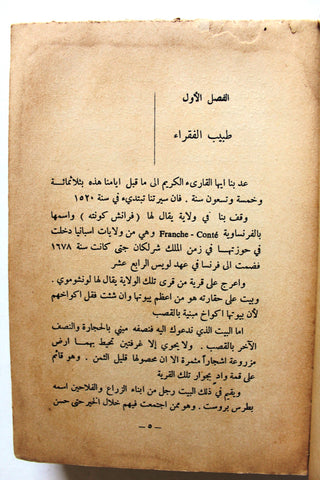 الفصل الأول
طبيب الفقراء
عد بنا ايها القارىء الكريم الى ما قبل ايامنا هذه بثلاثمائة
وخمسة وتسعون سنة . فان سيرتنا تبتدىء في سنة ١٥٢٠
وقف بنا في ولاية يقال لها ( فرانش كونته ) واسمها
بالفرنساوية Franche - Conté وهي من ولايات اسبانيا دخلت
في حوزتها في زمن الملك شرلكان حتى كانت سنة ١٦٧٨
فضمت الى فرنسا في عهد لويس الرابع عشر
واعرج على قرية من قرى تلك الولاية يقال لها لونشوموي .
وبيت على حقارته هو من اعظم بيوتها وان شئت فقل اكواخهم
لأن بيوتها اكواخ مبنية بالقصب
اما البيت الذي ندعوك اليه فنصفه مبني بالحجارة والنصف
الآخر بالقصب . ولا يحوي إلا غرفتين تحيط بهما ارض
مزروعة اشجاراً مثمرة الا ان محصولها قليل الثمن . وهو قائم
على قمة واد بجوار تلك القرية
ويقيم في ذلك البيت رجل من ابناء الزراع والفلاحين اسمه
بطرس بروست . وهو ممن اجتمعت فيهم خلال الخير حتى حسن
— ٥ —